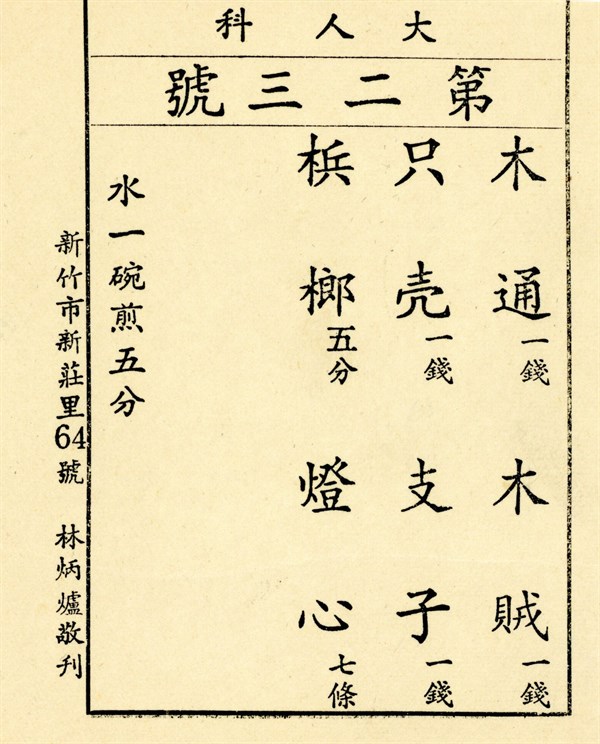 大人科
第二三號
木通一錢 木賊一錢
只壳一錢 支子一錢
梹榔五分 燈心七條
水一碗煎五分
新竹市新莊里64號 林炳爐敬刊